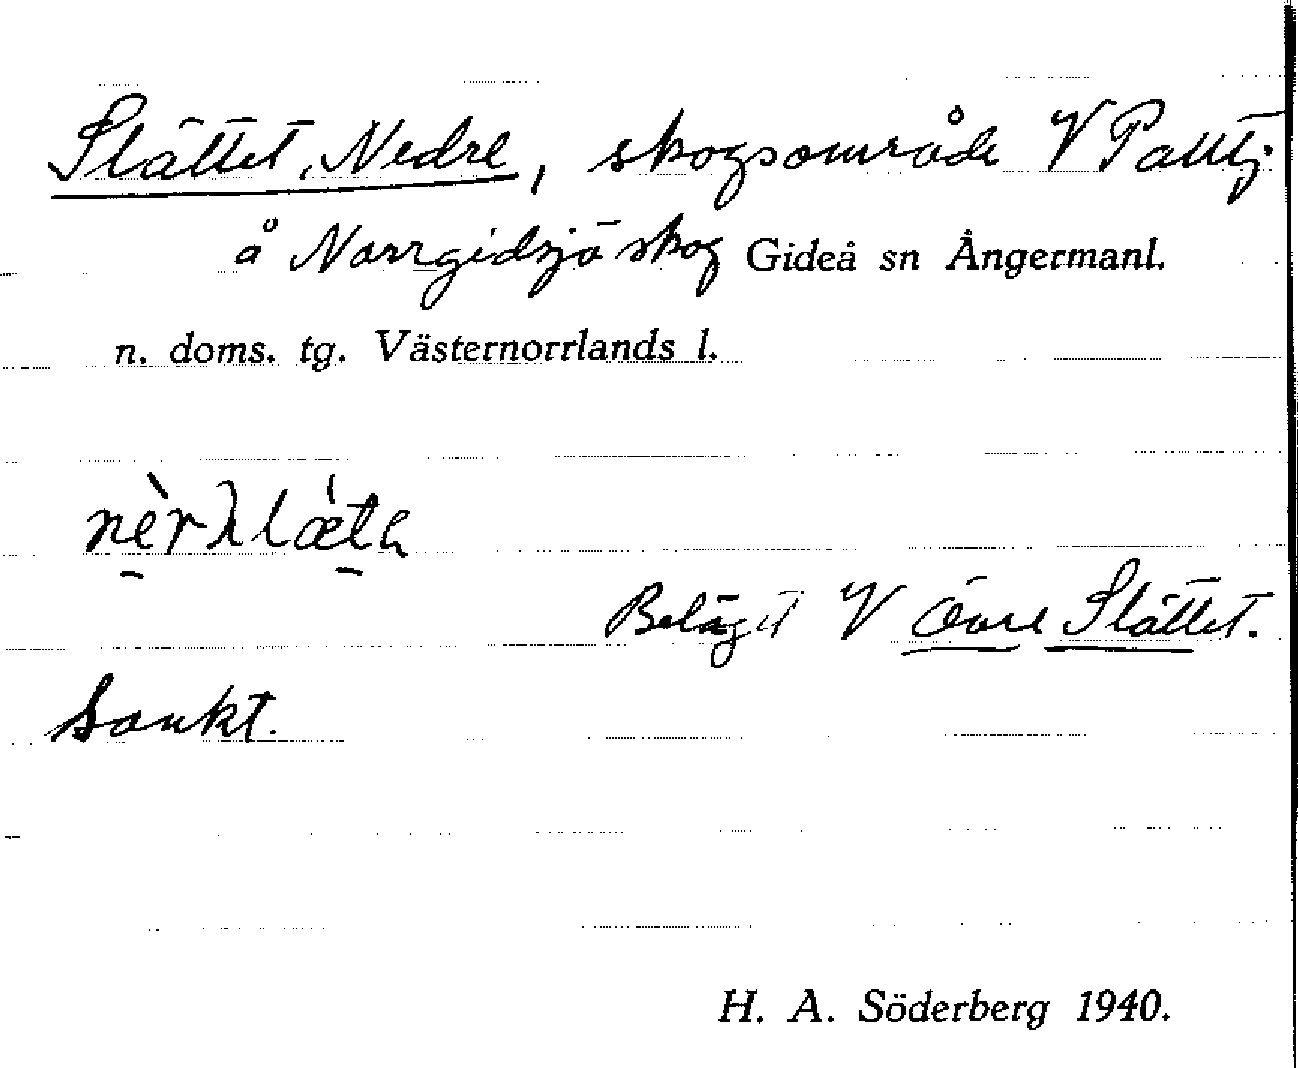 Slättet, Nedre, skogsområde V Pålltj.
å Norrgidsjö skog Gideå sn Ångermanl.
n. doms. tg. Västernorrlands l.
nèrλlæ̀ta
Beläget V Övre Slättet.
Sankt.
H. A. Söderberg 1940.